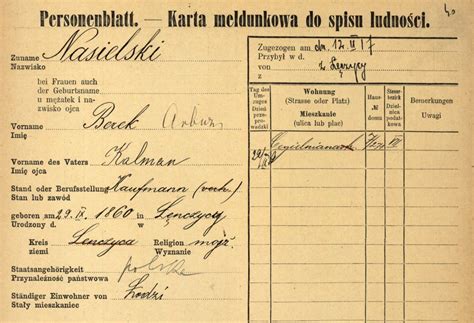 Personenblatt. — Karta meldunkowa do spisu ludności.
Zuname Nasielski
Nazwisko
bei Frauen auch
der Geburtsname
u mężatek i na-
zwisko ojca
Vorname Berek
Imię
Vorname des Vaters Kalman
Imię ojca
Stand oder Berufsstellung Kaufmann (verh.)
Stan lub zawód
geboren am 29. IX. 1860 in Lenczycy
Urodzony d. w
Kreis Lenczyca Religion mojż.
ziemi Wyznanie
Staatsangehörigkeit polska
Przynależność państwowa
Ständiger Einwohner von Łodzi
Stały mieszkaniec
Zugezogen am 12. II 17
Przybył w d.
von z Łęczycy
z
Tag des
Um-
zuges
Dzień
przepro-
wadzki
Wohnung
(Strasse oder Platz)
Mieszkanie
(ulica lub plac)
Haus-№
domu
Steuer-
bezirk
Dzielnica
podatkowa
Bemerkungen
Uwagi